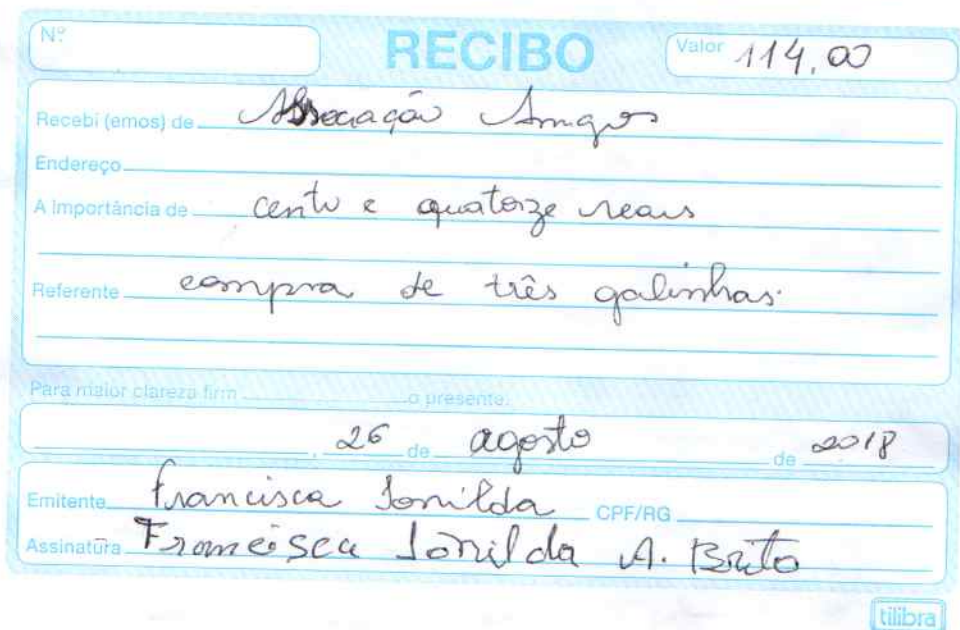 Nº
RECIBO
Valor 114,00
Recebi (emos) de Associação Amigos
Endereço
A Importância de cento e quatorze reais
Referente compra de três galinhas.
Para maior clareza firm o presente.
, 26 de agosto de 2018
Emitente Francisca Ionilda CPF/RG
Assinatura Francisca Ionilda A. Brito
tilibra